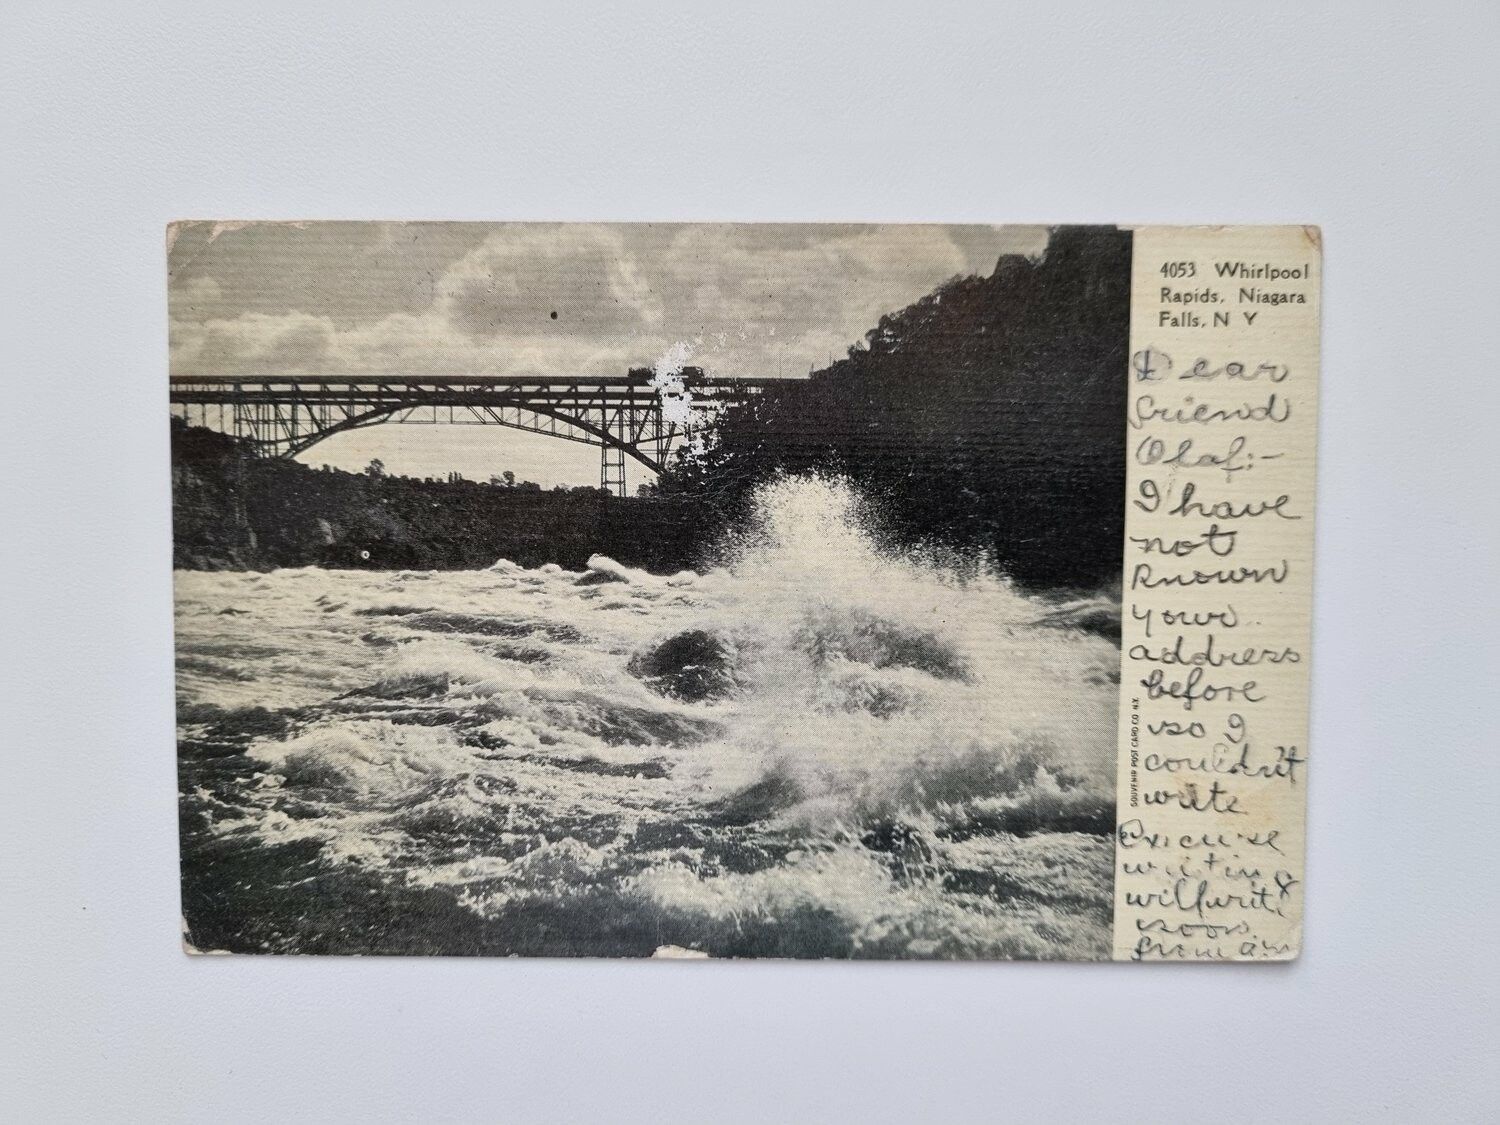 4053 Whirlpool
Rapids, Niagara
Falls, N Y
Dear
friend
Olaf:-
I have
not
known
your
address
before
so I
couldn't
write
Excuse
writing
will write
soon
from a
SOUVENIR POST CARD CO. N.Y.